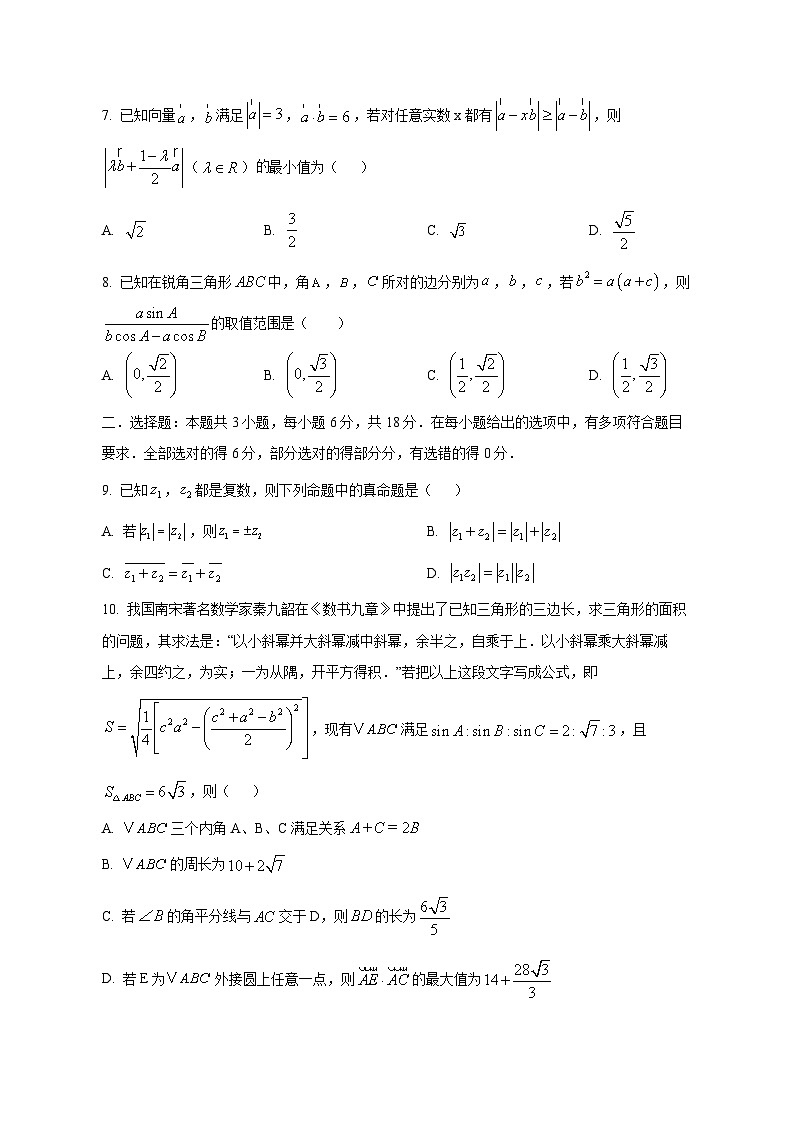 7. 已知向量 a, b 满足 |a| = 3, a · b = 6, 若对任意实数 x 都有 |a − xb| ≥ |a − b|, 则
|λb + (1 − λ)/2 a| ( λ ∈ R ) 的最小值为( )
A. √2 B. 3/2 C. √3 D. √5/2
8. 已知在锐角三角形 ABC 中, 角 A, B, C 所对的边分别为 a, b, c, 若 b² = a(a + c), 则
a sin A / (b cos A − a cos B) 的取值范围是( )
A. (0, √2/2) B. (0, √3/2) C. (1/2, √2/2) D. (1/2, √3/2)
二. 选择题: 本题共 3 小题, 每小题 6 分, 共 18 分. 在每小题给出的选项中, 有多项符合题目
要求. 全部选对的得 6 分, 部分选对的得部分分, 有选错的得 0 分.
9. 已知 z₁, z₂ 都是复数, 则下列命题中的真命题是( )
A. 若 |z₁| = |z₂|, 则 z₁ = ±z₂ B. |z₁ + z₂| = |z₁| + |z₂|
C. z̅₁̅ ̅+̅ ̅z̅₂̅ = z̅₁ + z̅₂ D. |z₁z₂| = |z₁||z₂|
10. 我国南宋著名数学家秦九韶在《数书九章》中提出了已知三角形的三边长, 求三角形的面积
的问题, 其求法是: “以小斜幂并大斜幂减中斜幂, 余半之, 自乘于上. 以小斜幂乘大斜幂减
上, 余四约之, 为实; 一为从隅, 开平方得积. ”若把以上这段文字写成公式, 即
S = √(1/4 [c²a² − ((c² + a² − b²)/2)²]), 现有∨ABC 满足 sin A : sin B : sin C = 2 : √7 : 3, 且
S△ABC = 6√3, 则( )
A. ∨ABC 三个内角 A、B、C 满足关系 A + C = 2B
B. ∨ABC 的周长为 10 + 2√7
C. 若 ∠B 的角平分线与 AC 交于 D, 则 BD 的长为 6√3/5
D. 若 E 为∨ABC 外接圆上任意一点, 则 AE · AC 的最大值为 14 + 28√3/3